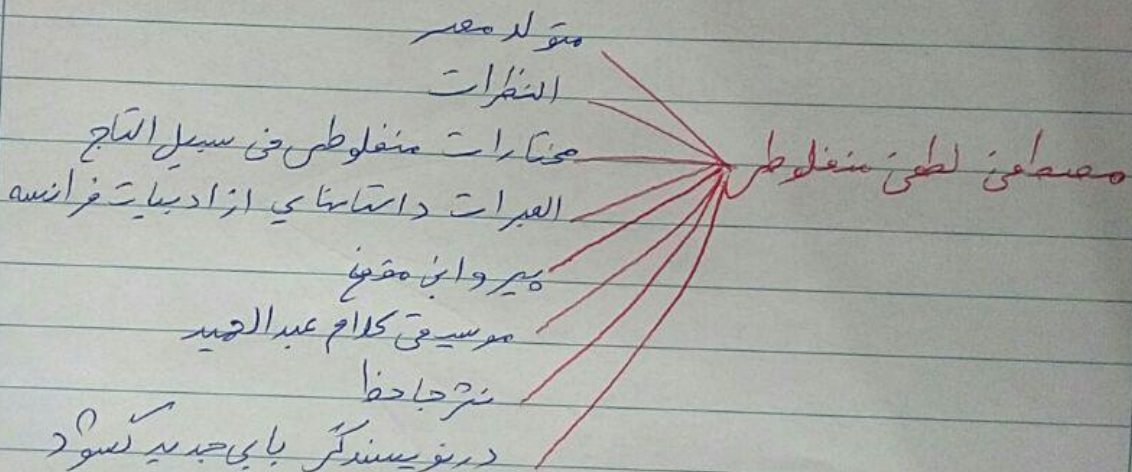 مصطفی لطفی منفلوطی
متولد مصر
النظرات
مختارات منفلوطی فی سبیل التاج
العبرات داستانهای از ادبیات فرانسه
پیرو ابن مقفع
موسیقی کلام عبدالحمید
نثر جاحظ
در نویسندگی بابی جدید گشود